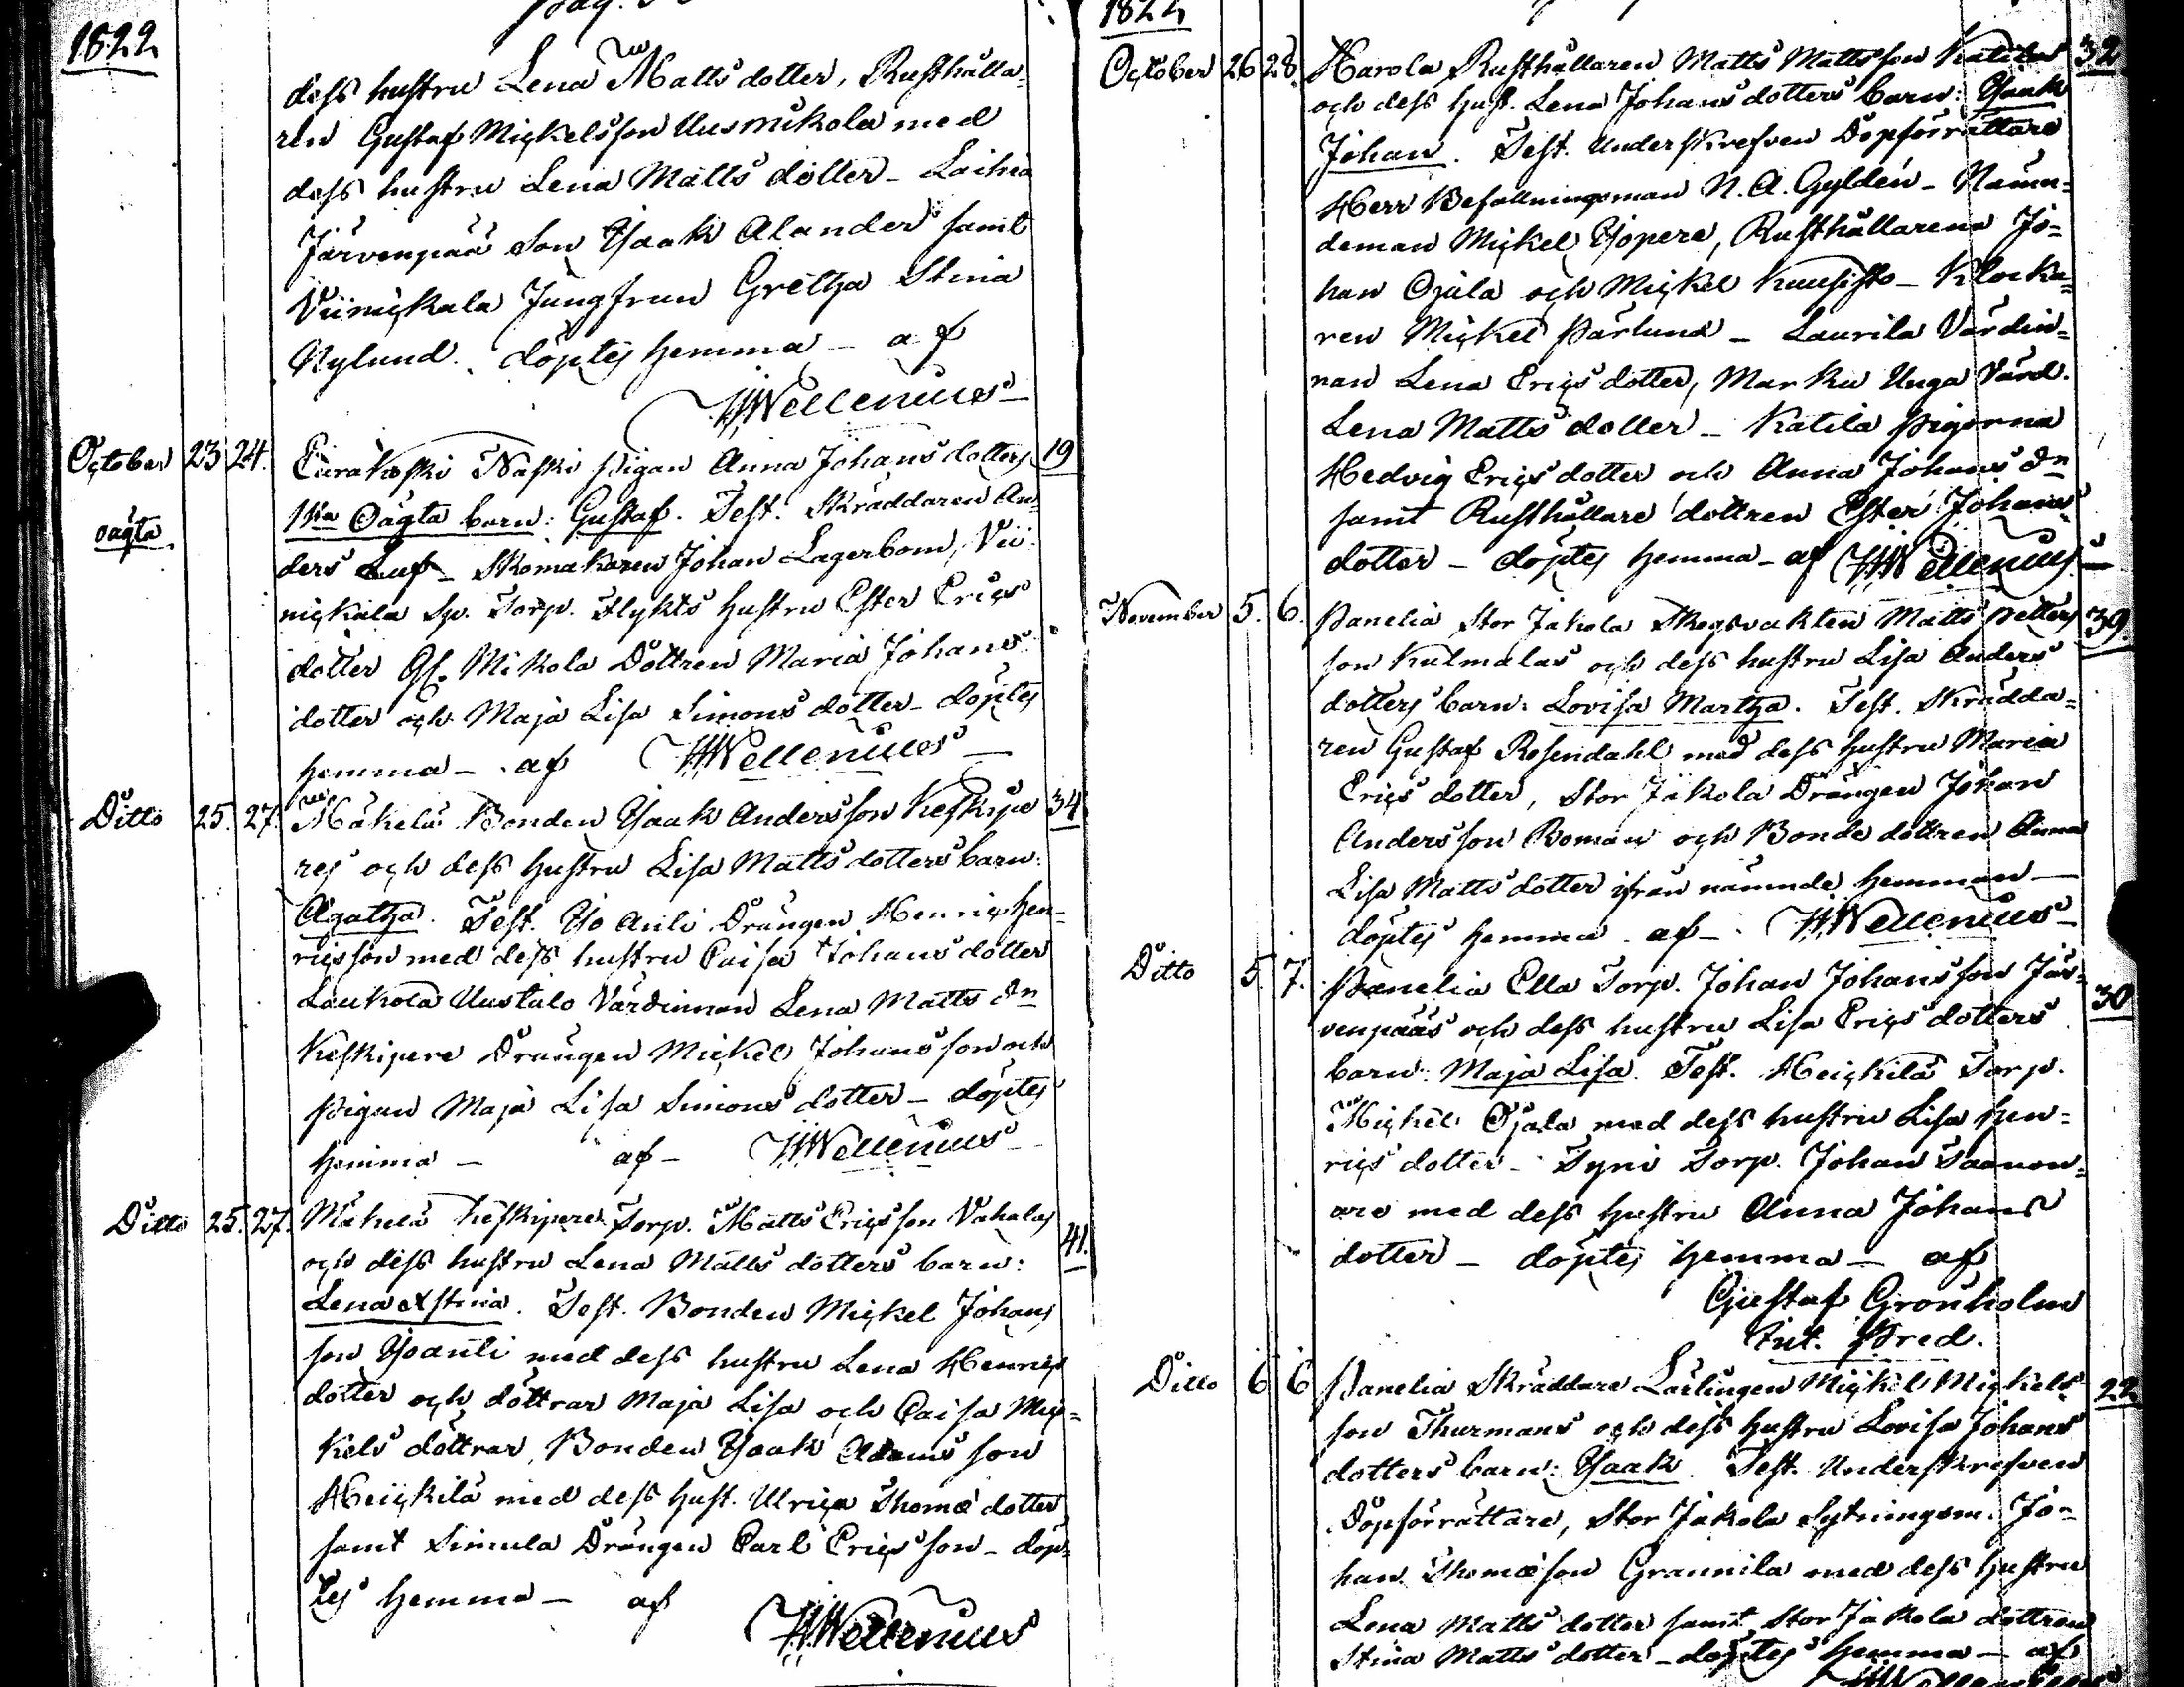 1822
dess hustru Lena Matts dotter, Rusthålla-
ren Gustaf Mickelsson Uusmikola med
dess hustru Lena Matts dotter - Laihia
Järvenpää Son Isaak Alander samt
Viinickala Jungfrun Gretha Stina
Nylund. döptes hemma - af
HWellenius
October 23 24. Eurakoski Naski pigan Anna Johans dotters 19
oägta 1sta Oägta barn: Gustaf. Test. Skräddaren An-
ders Luf - Skomakaren Johan Lagerbom, Vii-
nickala Sp. Torp. Flykts hustru Ester Erics
dotter Gl. Mikola Dottren Maria Johans
dotter och Maja Lisa Simons dotter - döptes
hemma - af HWellenius
Ditto 25. 27. Mäkelä Bonden Isaak Andersson Keskipe 34
res och dess hustru Lisa Matts dotters barn:
Agatha. Test. Iso Anli Drängen Henric Hen-
ricsson med dess hustru Caisa Johans dotter
Laukola Uustalo Värdinnan Lena Matts dn
Keskipere Drängen Mickel Johansson och
Pigan Maja Lisa Simons dotter - döptes
hemma - af - HWellenius
Ditto 25. 27. Mäkelä Keskipere Torp. Matts Ericsson Vahalas 41.
och dess hustru Lena Matts dotters barn:
Lena Xstina. Test. Bonden Mickel Johans
son Isoanti med dess hustru Lena Henrics
dotter och döttrar Maja Lisa och Caisa Mic-
kels döttrar, Bonden Isaak Adamsson
Heickilä med dess hust. Ulrica Thomæ dotter
samt Simula Drängen Carl Ericsson - döp-
tes hemma - af
HWellenius
1822
October 26 28. Karola Rusthållaren Matts Mattsson Katilas 32
och dess hust. Lena Johans dotters barn: Isaak
Johan. Test. Underskrefven Dopförrättare
Herr Befallningsman N. A. Gyldén - Nämn-
deman Mickel Isopere, Rusthållarena Jo-
han Ojala och Mickel Kuusisto - Klocka-
ren Mickel Pärlund - Laurila Värdin-
nan Lena Erics dotter, Marku Unga Värd.
Lena Matts dotter - Katila Pigorna
Hedvig Erics dotter och Anna Johans dn
samt Rusthållare dottren Ester Johans
dotter - döptes hemma - af HWellenius
November 5. 6. Panelia Stor Jakola Skogsvakten Matts Petters 39.
son Kulmalas och dess hustru Lisa Anders
dotters barn: Lovisa Martha. Test. Skrädda-
ren Gustaf Rosendahl med dess hustru Maria
Erics dotter, Stor Jakola Drängen Johan
Andersson Boman och Bonde dottren Anna
Lisa Matts dotter ifrån nämnde hemman -
döptes hemma af - HWellenius
Ditto 5. 7. Panelia Ella Torp. Johan Johansson Jär- 30
venpääs och dess hustru Lisa Erics dotters
barn: Maja Lisa. Test. Heickilä Torp.
Mickel Ojala med dess hustru Lisa Hen-
rics dotter - Syri Torp. Johan Saanon-
are med dess hustru Anna Johans
dotter - döptes hemma - af
Gustaf Grönholm
Pred.
Ditto 6 6 Panelia Skräddare Lärlingen Mickel Mickels 22
son Thurmans och dess hustru Lovisa Johans
dotters barn: Isaak. Test. Underskrefven
Dopförrättare, Stor Jakola Sytningsm. Jo-
han Thomæson Grannila med dess hustru
Lena Matts dotter samt Stor Jakola dottren
Stina Matts dotter - döptes hemma - af
HWellenius